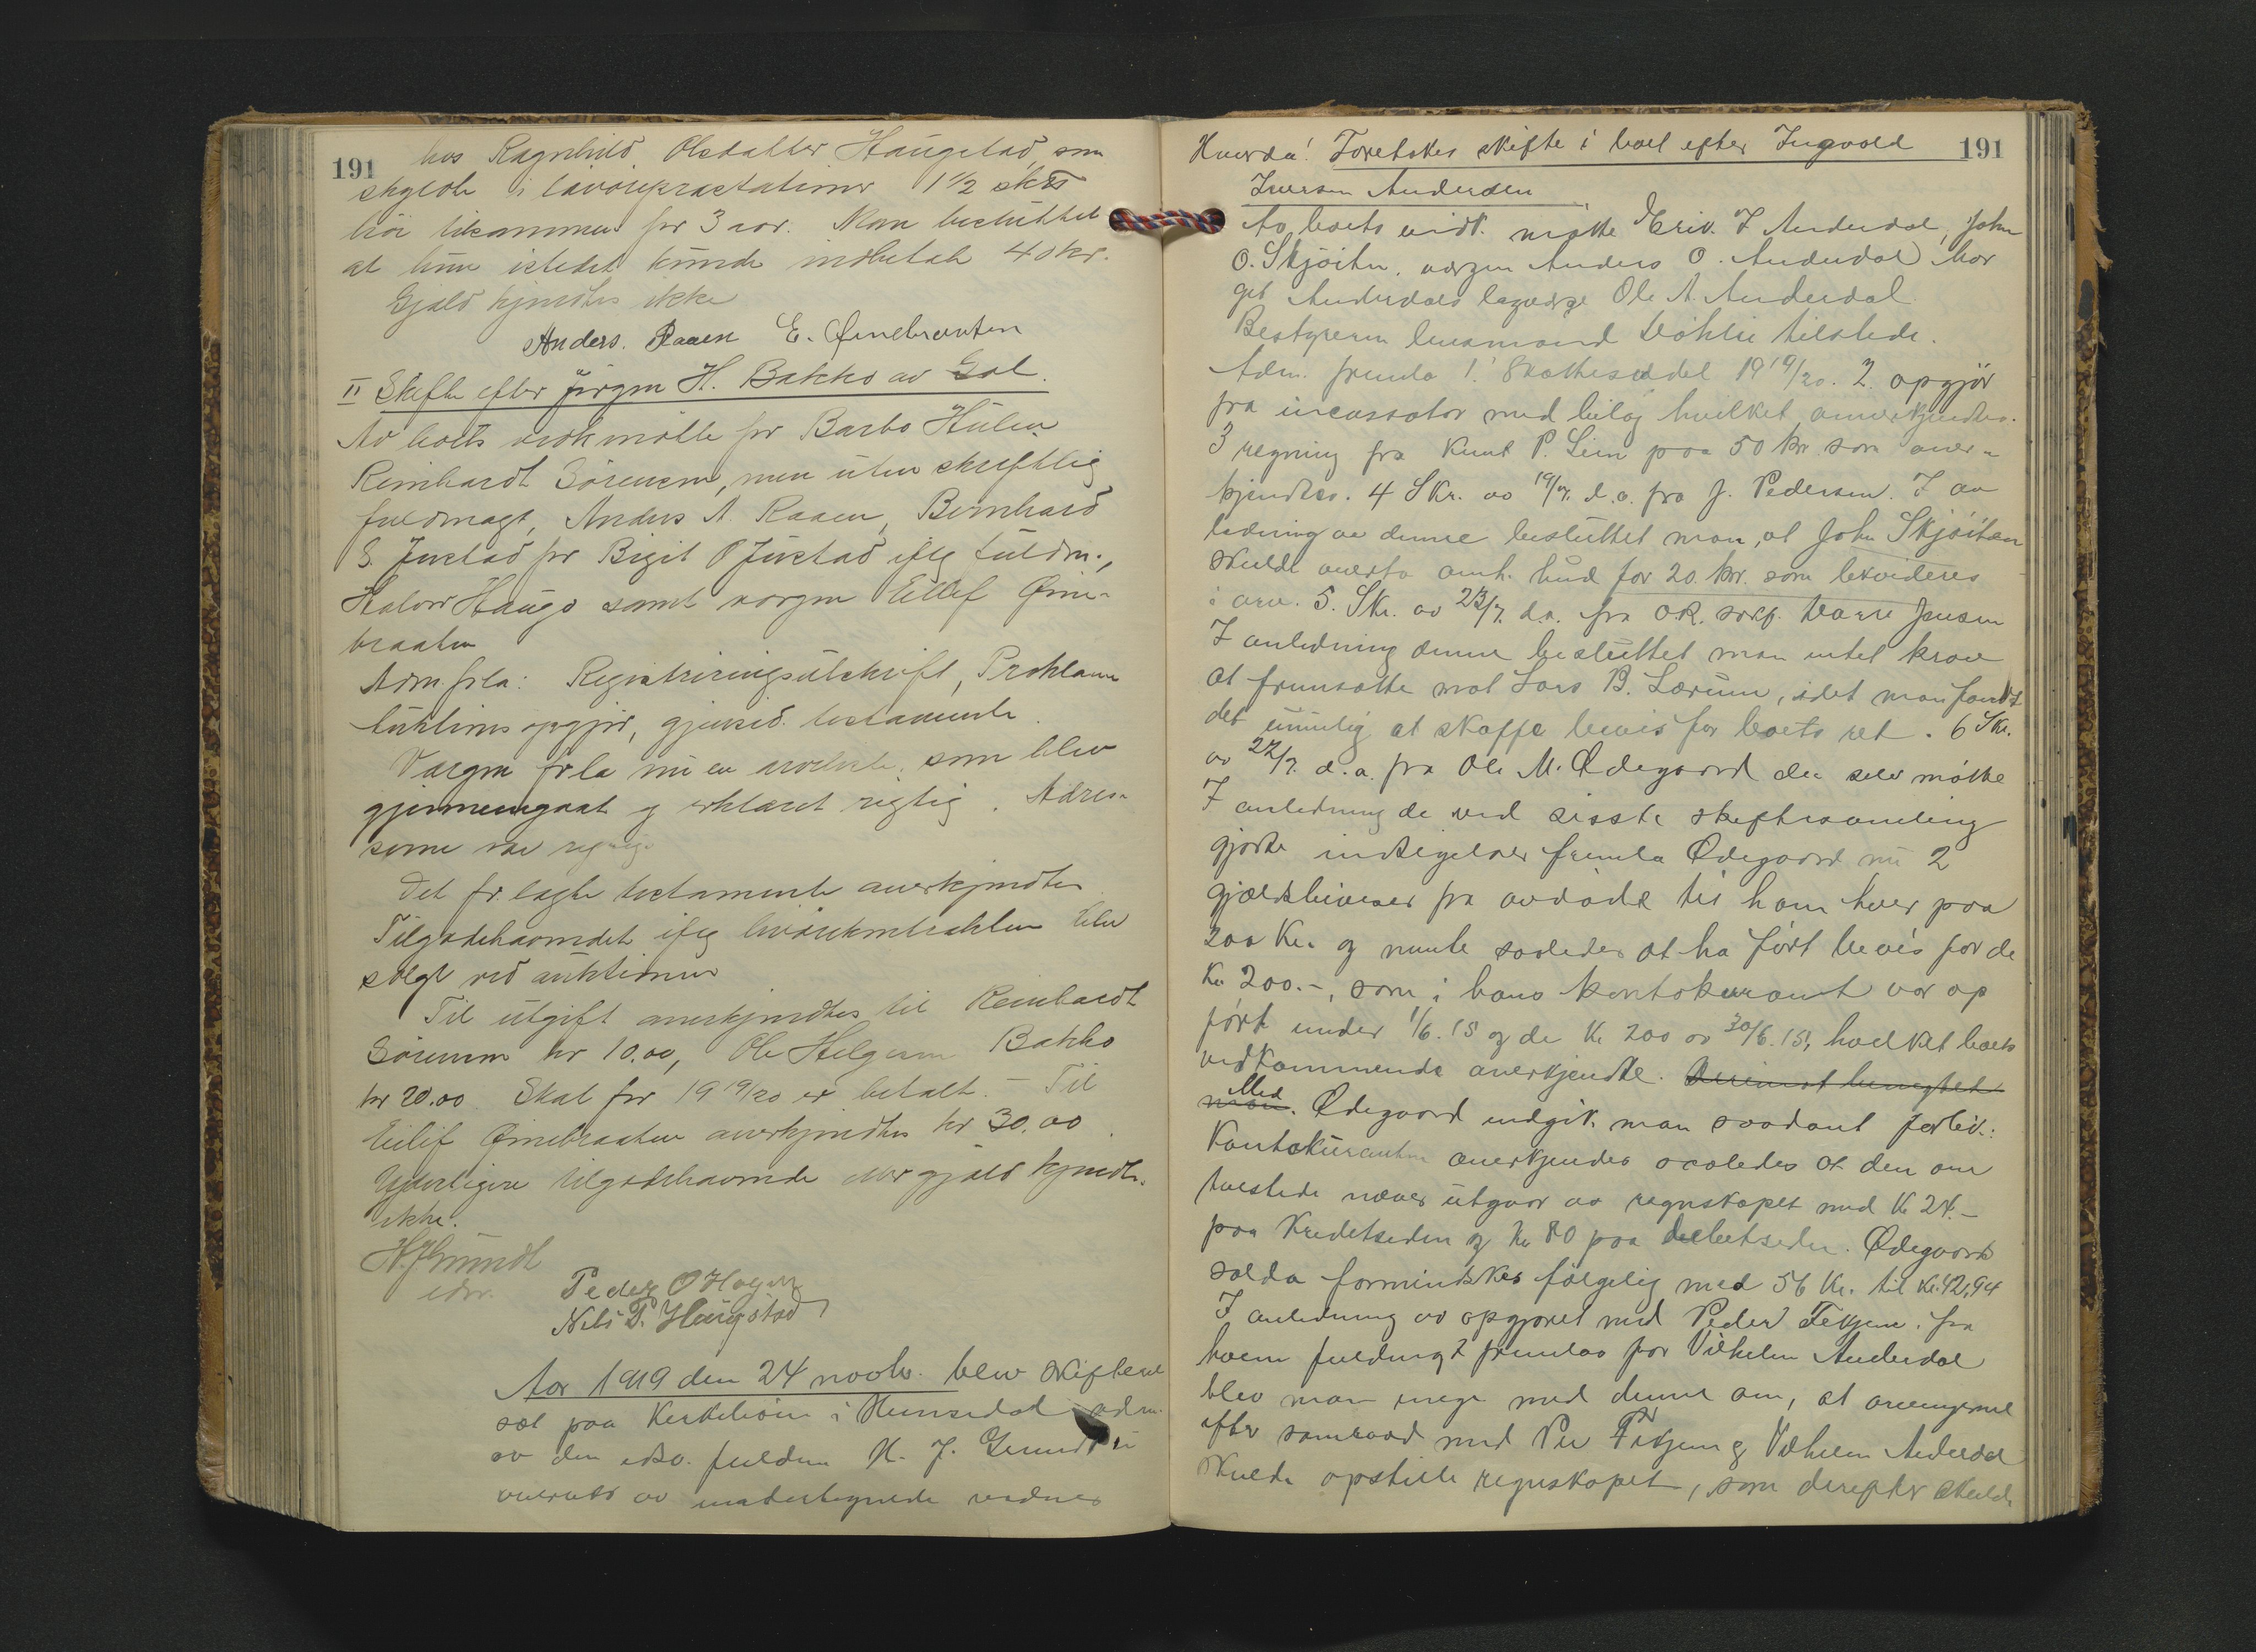 191
hos Ragnhild Olsdatter Haugstad, som
skylder i livøreprætationer 1 1/2 sk&
høi tilsammen for 3 aar. Man besluttet
at hun istedet kunde indbetale 40 kr.
Gjæld kjendtes ikke
Anders. Raaen E. Ørnebraaten
II Skifte efter Jørgen H. Bakko av Gol.
Av boets vedk møtte for Barbo Hulen
Reinhardt Sörensen, men uten skriftlig
fuldmagt, Anders A. Raaen, Bernhard
S. Juvstad for Birgit O Juvstad iflg fuldm.,
Halvor Haugo samt vergen Eilif Ørne-
braaten
Adm. frla: Registreringsutskrift, Proklama
auktionsopgjør, gjensid. testamente.
Vergen frla nu en arveliste, som blev
gjennemgaat og erklæret rigtig. Adres-
serne var rigtige
Det fr. lagte testamente anerkjendtes.
Tilgodehavendet iflg livørekontrakten blev
solgt ved auktionen
Til utgift anerkjendtes til Reinhardt
Sörensen kr 10.00, Ole Helgesen Bakko
kr 20.00 Skat for 1919/20 er betalt. - Til
Eilif Ørnebraaten anerkjendtes kr 30.00.
Yderligere tilgodehavende eller gjæld kjendtes
ikke.
H. J. Grundt
edsv.
Peder O Hagen
Nils P. Haugstad
Aar 1919 den 24 novbr. blev skifteret
sat paa Kirkebøen i Hemsedal adm.
av den edsv. fuldm H. J. Grundt i
overvær av undertegnede vidner
191
Hvorda! Foretokes skifte i boet efter Ingvald
Iversen Anderdal
Av boets vedk. møtte Eriv. I Anderdal, John
O. Skjöiten, vergen Anders O. Anderdal Mar
git Anderdals lagverge Ole A. Anderdal
Bestyreren lensmand Vøhlie tilstede.
Adm. fremla 1. Skatteseddel 1919/20. 2. opgjör
fra incassator med bilag hvilket anerkjendtes.
3 regning fra Knut P. Lein paa 50 kr som aner-
kjendtes. 4 Skr. av 19/7. d.a. fra J. Pedersen. I an
ledning av denne besluttet man, at John Skjöiten
skulde overta omh. hud for 20. kr. som likvideres
i arv. 5. Skr. av 23/7. d.a. fra O.R. sakf. Jensen
I anledning denne besluttet man intet krav
at fremsætte mot Lars B. Lærum, idet man fandt
det umulig at skaffe bevis for boets ret. 6 Skr.
av 27/7. d.a. fra Ole M. Ødegaard der selv møtte
I anledning de ved sisste skiftesamling
gjorte indsigelser fremla Ødegaard nu 2
gjældsbeviser fra avdöde til ham hver paa
200 Kr. og mente saaledes at ha fört bevis for de
Kr. 200.-, som i hans kontokurant var op
fört under 1/6. 15 og de Kr 200 av 30/6. 15, hvilket boets
vedkommende anerkjendte.
Med Ødegaard indgik man saadant forlik:
Kontokuranten anerkjendes saaledes at den om
tvistede næver utgaar av regnskapet med Kr 24.-
paa Kreditsiden og Kr 80 paa debetsiden. Ødegaards
saldo formindskes fölgelig med 56 Kr. til Kr. 42,94
I anledning av opgjöret med Peder Fekjene, fra
hvem fuldmagt fremlaa for Vilhelm Anderdal
blev man enige med denne om, at
efter samraad med Per Fekjene og Vilhelm Anderdal
skulde opstille regnskapet, som derefter skulde